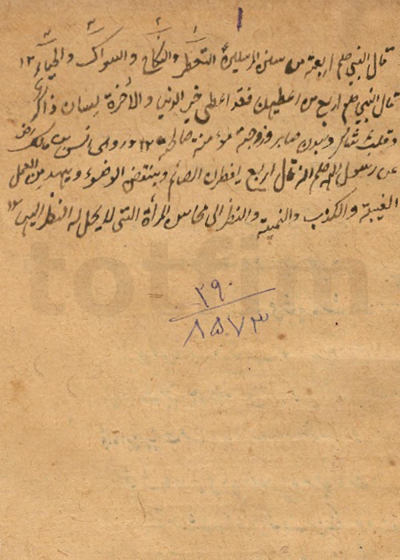 ١
١ ٢ ٣ ٤
قال النبي صلعم اربعة من سنن المرسلين التعطر والنكاح والسواك والحياء ١٢
قال النبي صلعم اربع من اعطيهن فقد اعطى خير الدنيا والآخرة لسان ذاكر
وقلب شاكر وبدن صابر وزوجة مؤمنة صالحة ١٢ وروى انس بن مالك رض
عن رسول الله صلعم انه قال اربع يفطرن الصائم وينقض الوضوء ويهدمن العمل
الغيبة والكذب والنميمة والنظر الى محاسن المرأة التي لا يحل له النظر اليها ١٢
totfim
٢٩٠
٨٥٧٣